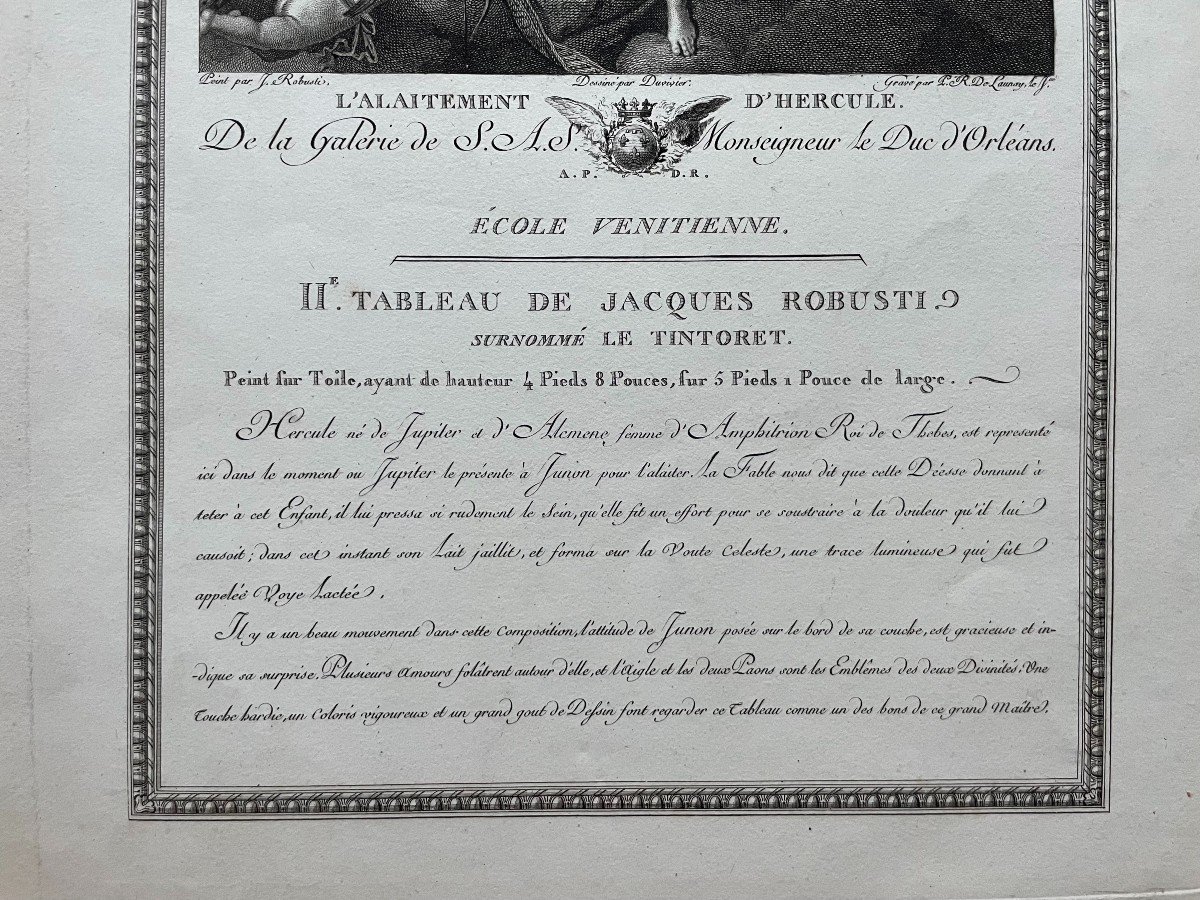 Peint par J. Robusti, Dessiné par Duvivier. Gravé par P. et R. De Launay, le J.
L'ALAITEMENT D'HERCULE.
De la Galerie de S.A.S. Monseigneur le Duc d'Orléans.
A. P. D. R.
ÉCOLE VENITIENNE.
IIE. TABLEAU DE JACQUES ROBUSTI.
SURNOMMÉ LE TINTORET.
Peint sur Toile, ayant de hauteur 4 Pieds 8 Pouces, sur 5 Pieds 1 Pouce de large.
Hercule né de Jupiter et d'Alcmene femme d'Amphitrion Roi de Thebes, est representé
ici dans le moment ou Jupiter le présente à Junon pour l'alaiter. La Fable nous dit que cette Déesse donnant à
teter à cet Enfant, il lui pressa si rudement le Sein, qu'elle fit un effort pour se soustraire à la douleur qu'il lui
causoit; dans cet instant son Lait jaillit, et forma sur la Voute Celeste, une trace lumineuse qui fut
appeleé Voye Lactée.
Il y a un beau mouvement dans cette Composition, l'attitude de Junon posée sur le bord de sa couche, est gracieuse et in-
-dique sa surprise. Plusieurs Amours folâtrent autour d'elle, et l'Aigle et les deux Paons sont les Emblêmes des deux Divinités. Une
Touche hardie, un Coloris vigoureux et un grand gout de Dessin font regarder ce Tableau comme un des bons de ce grand Maître.